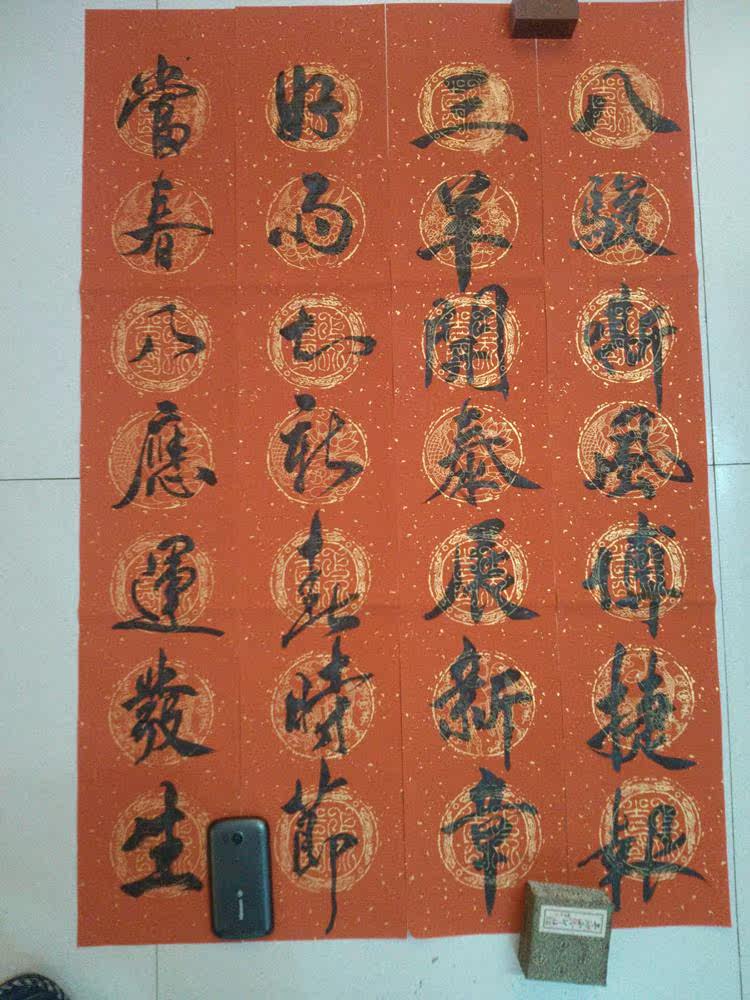 八駿嘶風傳捷報
三羊開泰展新章
好雨知時節
當春乃應運發生